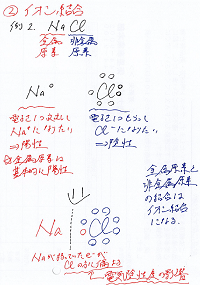 ② イオン結合
例2. NaCl
金属 非金属
原素 原素
Na Cl
電子1つ失って
Na⁺になりたい
⇒陽性
電子1つもらって
Cl⁻になりたい
⇒陰性
金属原素は
基本的に陽性
金属原素と
非金属原素
の結合は
イオン結合
になる。
Na Cl
Naが持っていた電子が
Clの方に偏る
電気陰性度の影響